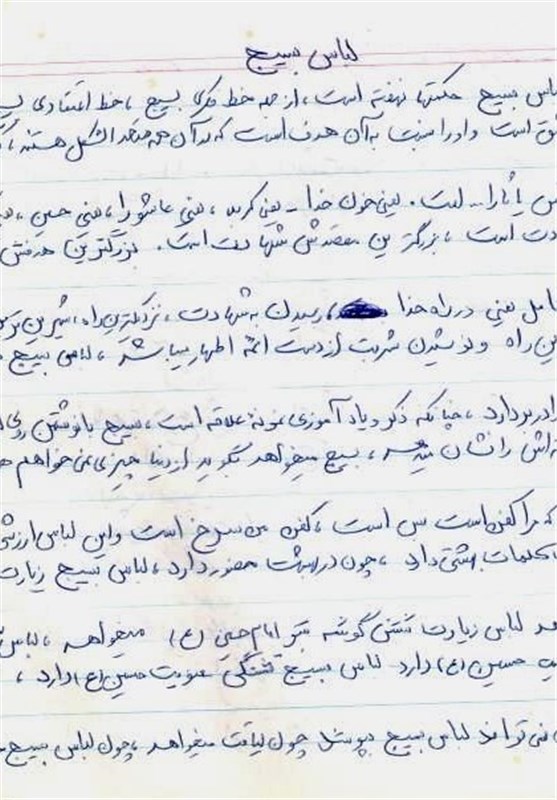 لباس بسیج
لباس بسیج حکمتها نهفته است، از جمله خط فکری بسیج، خط اعتقادی
است و او را نسبت به آن هدف است که در آن همه متحد الشکل هستند،
یا ثارا... است. یعنی خون خدا - یعنی کربلا، یعنی عاشورا، یعنی حسین،
است، بزرگترین مقصدش شهادت است. بزرگترین هدفش
یعنی در راه خدا رسیدن به شهادت، نزدیکترین راه، شیرین
این راه و نوشیدن شربت از دست ائمه اطهار میباشد، لباس بسیج
دربردارد، چنانکه ذکر و یادآموزی نمونه علاقه است، بسیج با نوشتن روی
اش را نشان میدهد، بسیج میخواهد بگوید از دنیا چیزی نمی خواهم
که مرا کفن است بس است، کفن من سرخ است و این لباس
کلمات بهشتی دارد، چون در بهشت حضور دارد، لباس بسیج زیارت
لباس زیارت شش گوشه قبر امام حسین (ع) میخواهد، لباس
حسین (ع) دارد لباس بسیج تشنگی حسین (ع) دارد،
نمی تواند لباس بسیج بپوشد چون لیاقت میخواهد، چون لباس بسیج